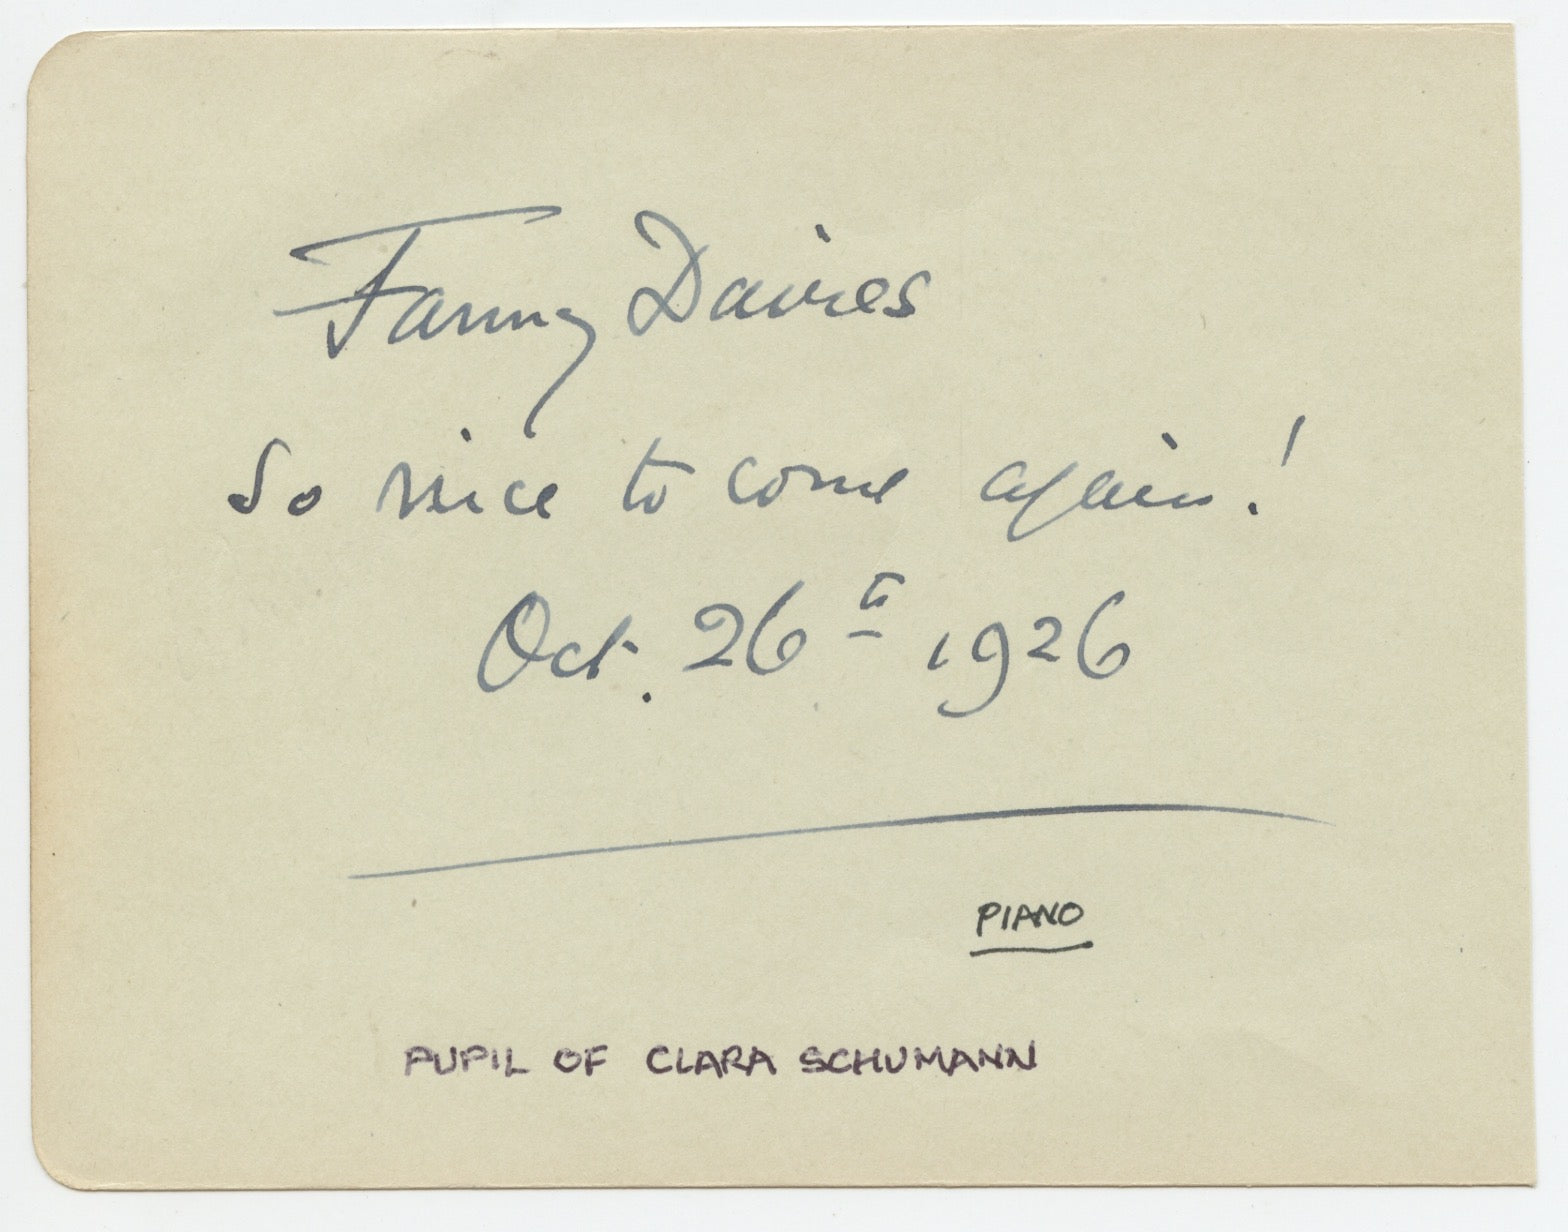 Fanny Davies
So nice to come again!
Oct. 26th 1926
PIANO
PUPIL OF CLARA SCHUMANN